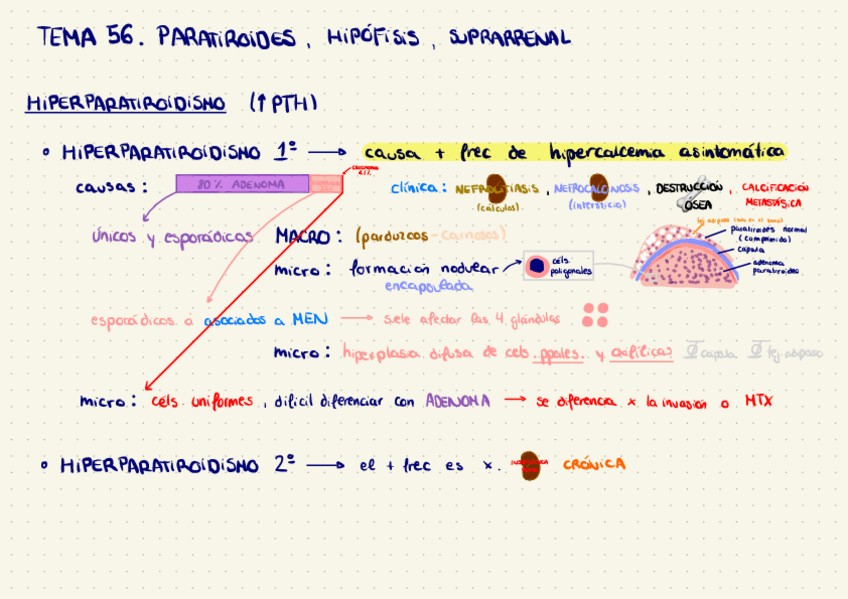 TEMA 56. PARATIROIDES, HIPÓFISIS, SUPRARRENAL
HIPERPARATIROIDISMO (↑ PTH)
• HIPERPARATIROIDISMO 1º → causa + frec de hipercalcemia asintomática
causas: 80% ADENOMA
clínica: NEFROLITIASIS, NEFROCALCINOSIS, DESTRUCCIÓN ÓSEA, CALCIFICACIÓN METASTÁSICA
(cálculos) (intersticio)
únicos y esporádicos MACRO: (parduzcos-carnosos)
paratiroides normal (comprimido)
cápsula
adenoma paratiroideo
micro: formación nodular encapsulada
céls poligonales
esporádicos o asociados a MEN → suele afectar las 4 glándulas
micro: hiperplasia difusa de cels. ppales. y oxifílicas cápsula tej. adiposo
micro: céls. uniformes, difícil diferenciar con ADENOMA → se diferencia x la invasión o MTX
• HIPERPARATIROIDISMO 2º → el + frec es x. CRÓNICA